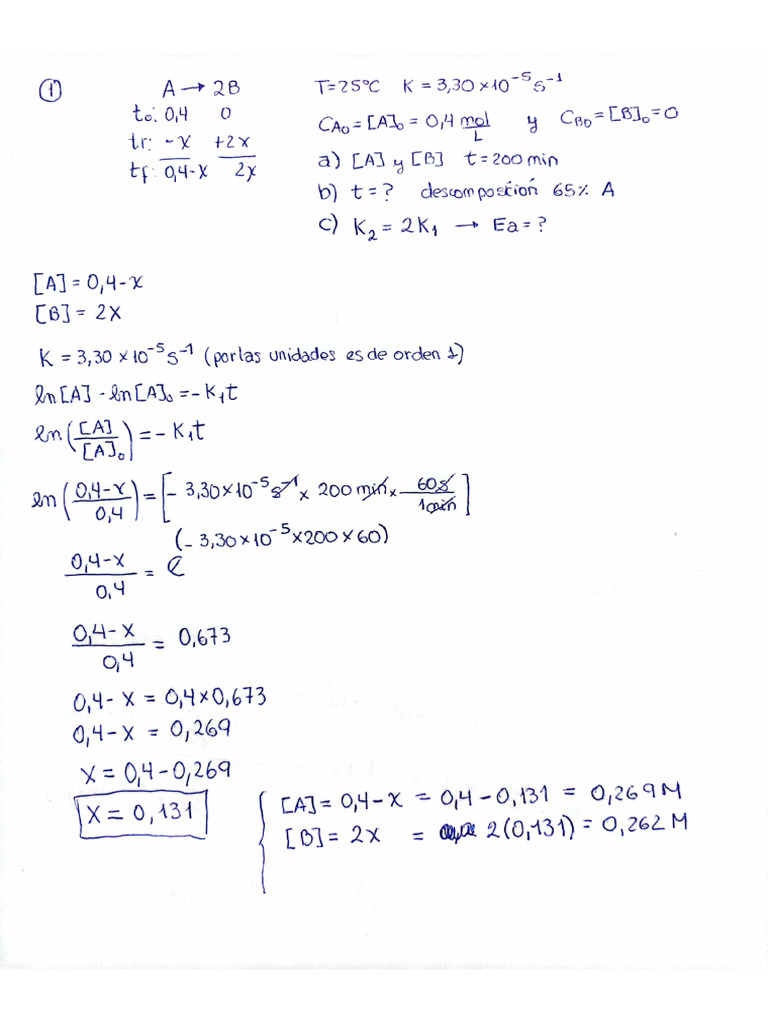 ① A → 2B T=25°C K = 3,30×10⁻⁵ s⁻¹
to: 0,4 0 C_Ao = [A]₀ = 0,4 mol/L y C_Bo = [B]₀ = 0
tr: -x +2x a) [A] y [B] t = 200 min
tf: 0,4-x 2x b) t = ? descomposición 65% A
c) K₂ = 2K₁ → Ea = ?
[A] = 0,4-x
[B] = 2X
K = 3,30×10⁻⁵ s⁻¹ (por las unidades es de orden 1)
ln[A] - ln[A]₀ = -K₁t
ln([A]/[A]₀) = -K₁t
ln((0,4-x)/0,4) = [-3,30×10⁻⁵ s⁻¹ × 200 min × 60s/1min]
(0,4-x)/0,4 = e^(-3,30×10⁻⁵×200×60)
(0,4-x)/0,4 = 0,673
0,4-x = 0,4×0,673
0,4-x = 0,269
x = 0,4-0,269
x = 0,131
[A] = 0,4-x = 0,4-0,131 = 0,269 M
[B] = 2x = 2(0,131) = 0,262 M